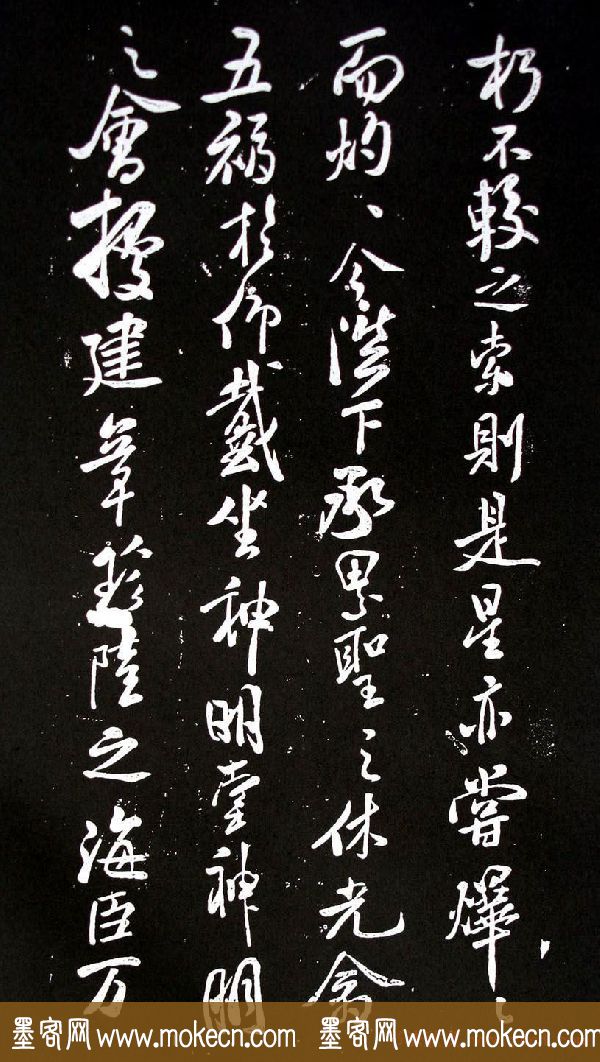 朽不較之索則是星亦嘗爗〻
而灼〻今陛下承累聖之休光貪
五福於仰戴坐神明堂神明
之會授建章珍陸之海臣万
墨客网 www.mokecn.com 墨客网 www.mokecn.com